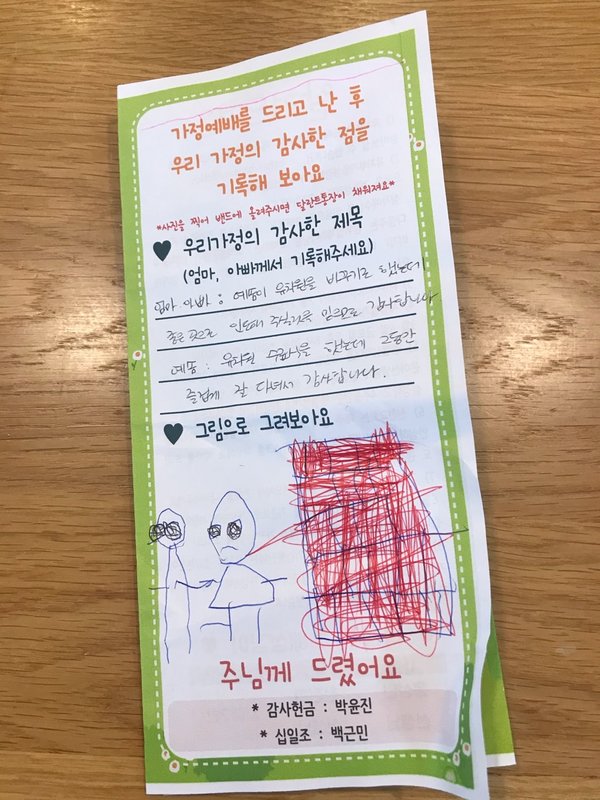 가정예배를 드리고 난 후
우리 가정의 감사한 점을
기록해 보아요
*사진을 찍어 밴드에 올려주시면 달란트통장이 채워져요*
우리가정의 감사한 제목
(엄마, 아빠께서 기록해주세요)
엄마 아빠 : 예종이 유치원을 바꾸기로 했는데
좋은 곳으로 인도해 주실 믿으므로 감사합니다
예종 : 유치원 수료식을 했는데 그동안
즐겁게 잘 다녀서 감사합니다.
그림으로 그려보아요
주님께 드렸어요
* 감사헌금 : 박윤진
* 십일조 : 백근민